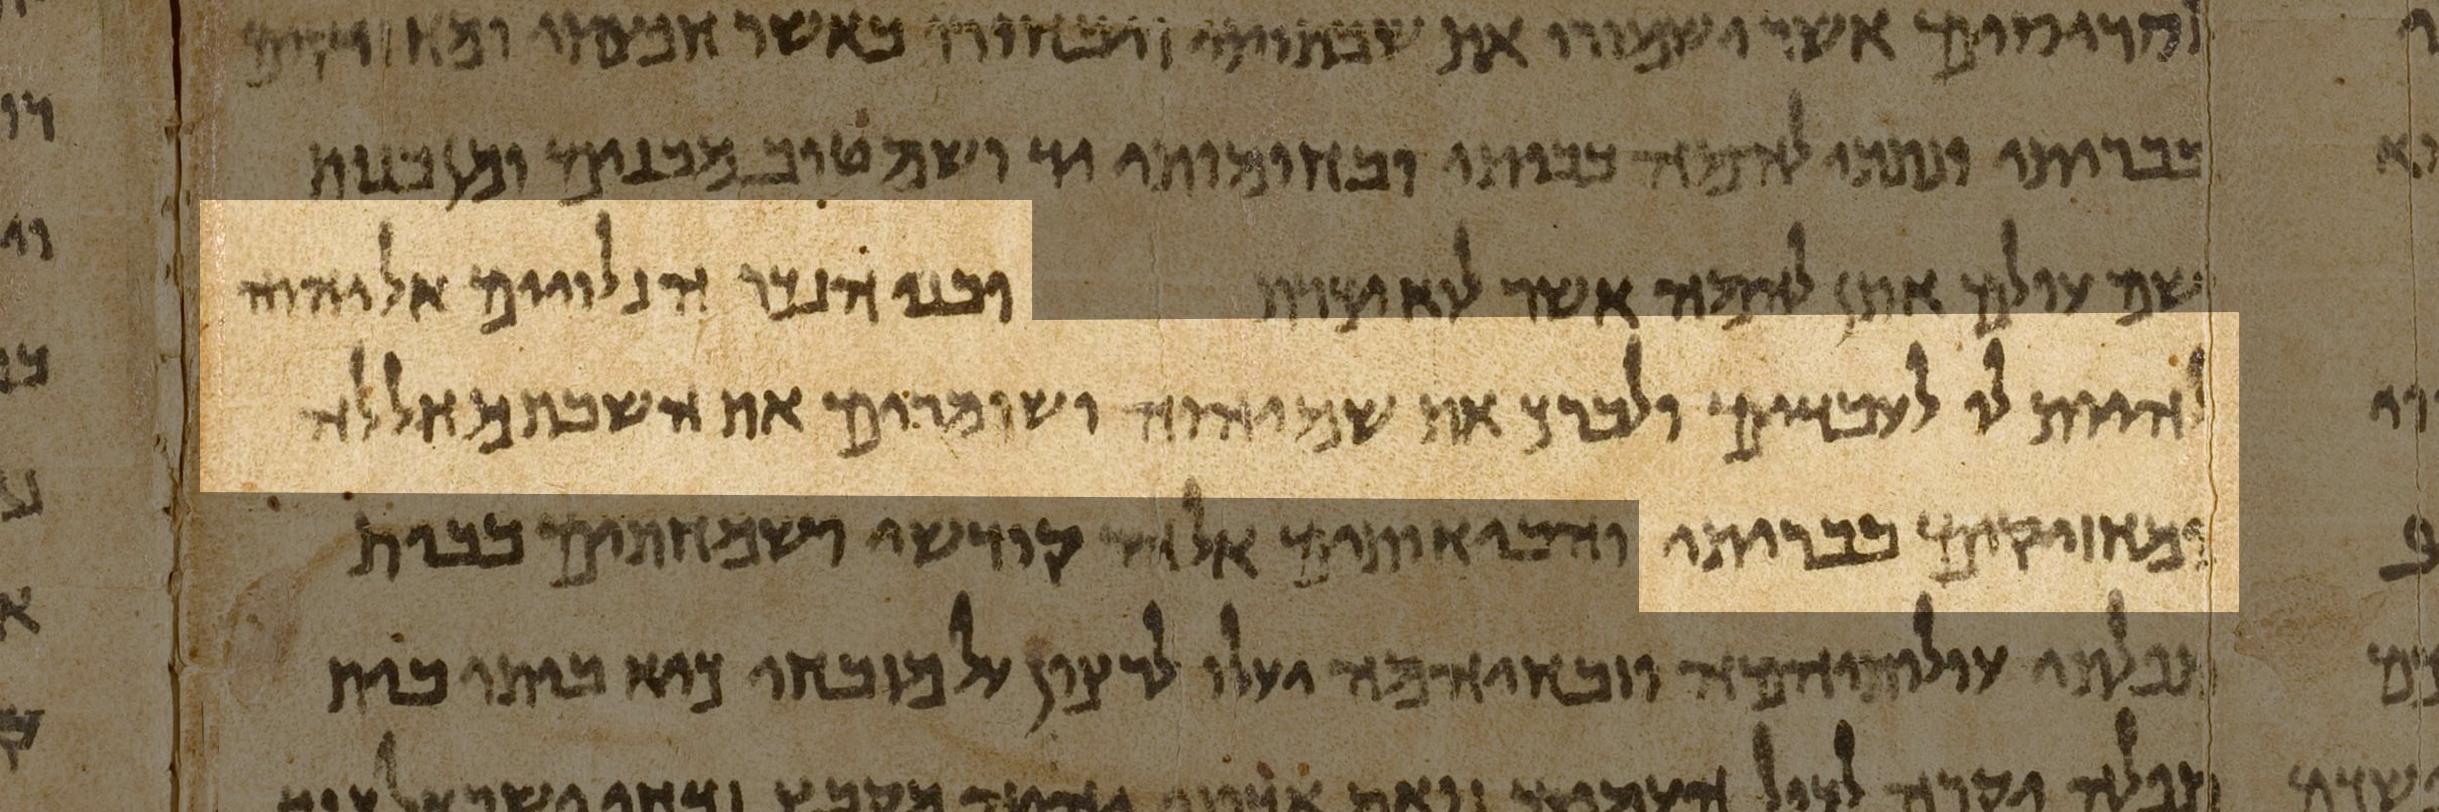 לסריסים אשר ישמורו את שבתותי ויבחורו באשר חפצתי ומחזיקים
בבריתי ונתתי להמה בביתי ובחומותי יד ושם טוב מבנים ומן בנות
שם עולם אתן להמה אשר לוא יכרת ובני הנכר הנלויים אל יהוה
להיות לו לעבדים ולברך את שם יהוה ושומרים את השבת מחללה
ומחזיקים בבריתי והביאותים אל הר קודשי ושמחתים בבית
תפלתי עולותיהמה וזבחיהמה יעלו לרצון על מזבחי כיא ביתי בית
תפלה יקרה לכול העמים נואם אדוני יהוה מקבץ נדחי ישראל